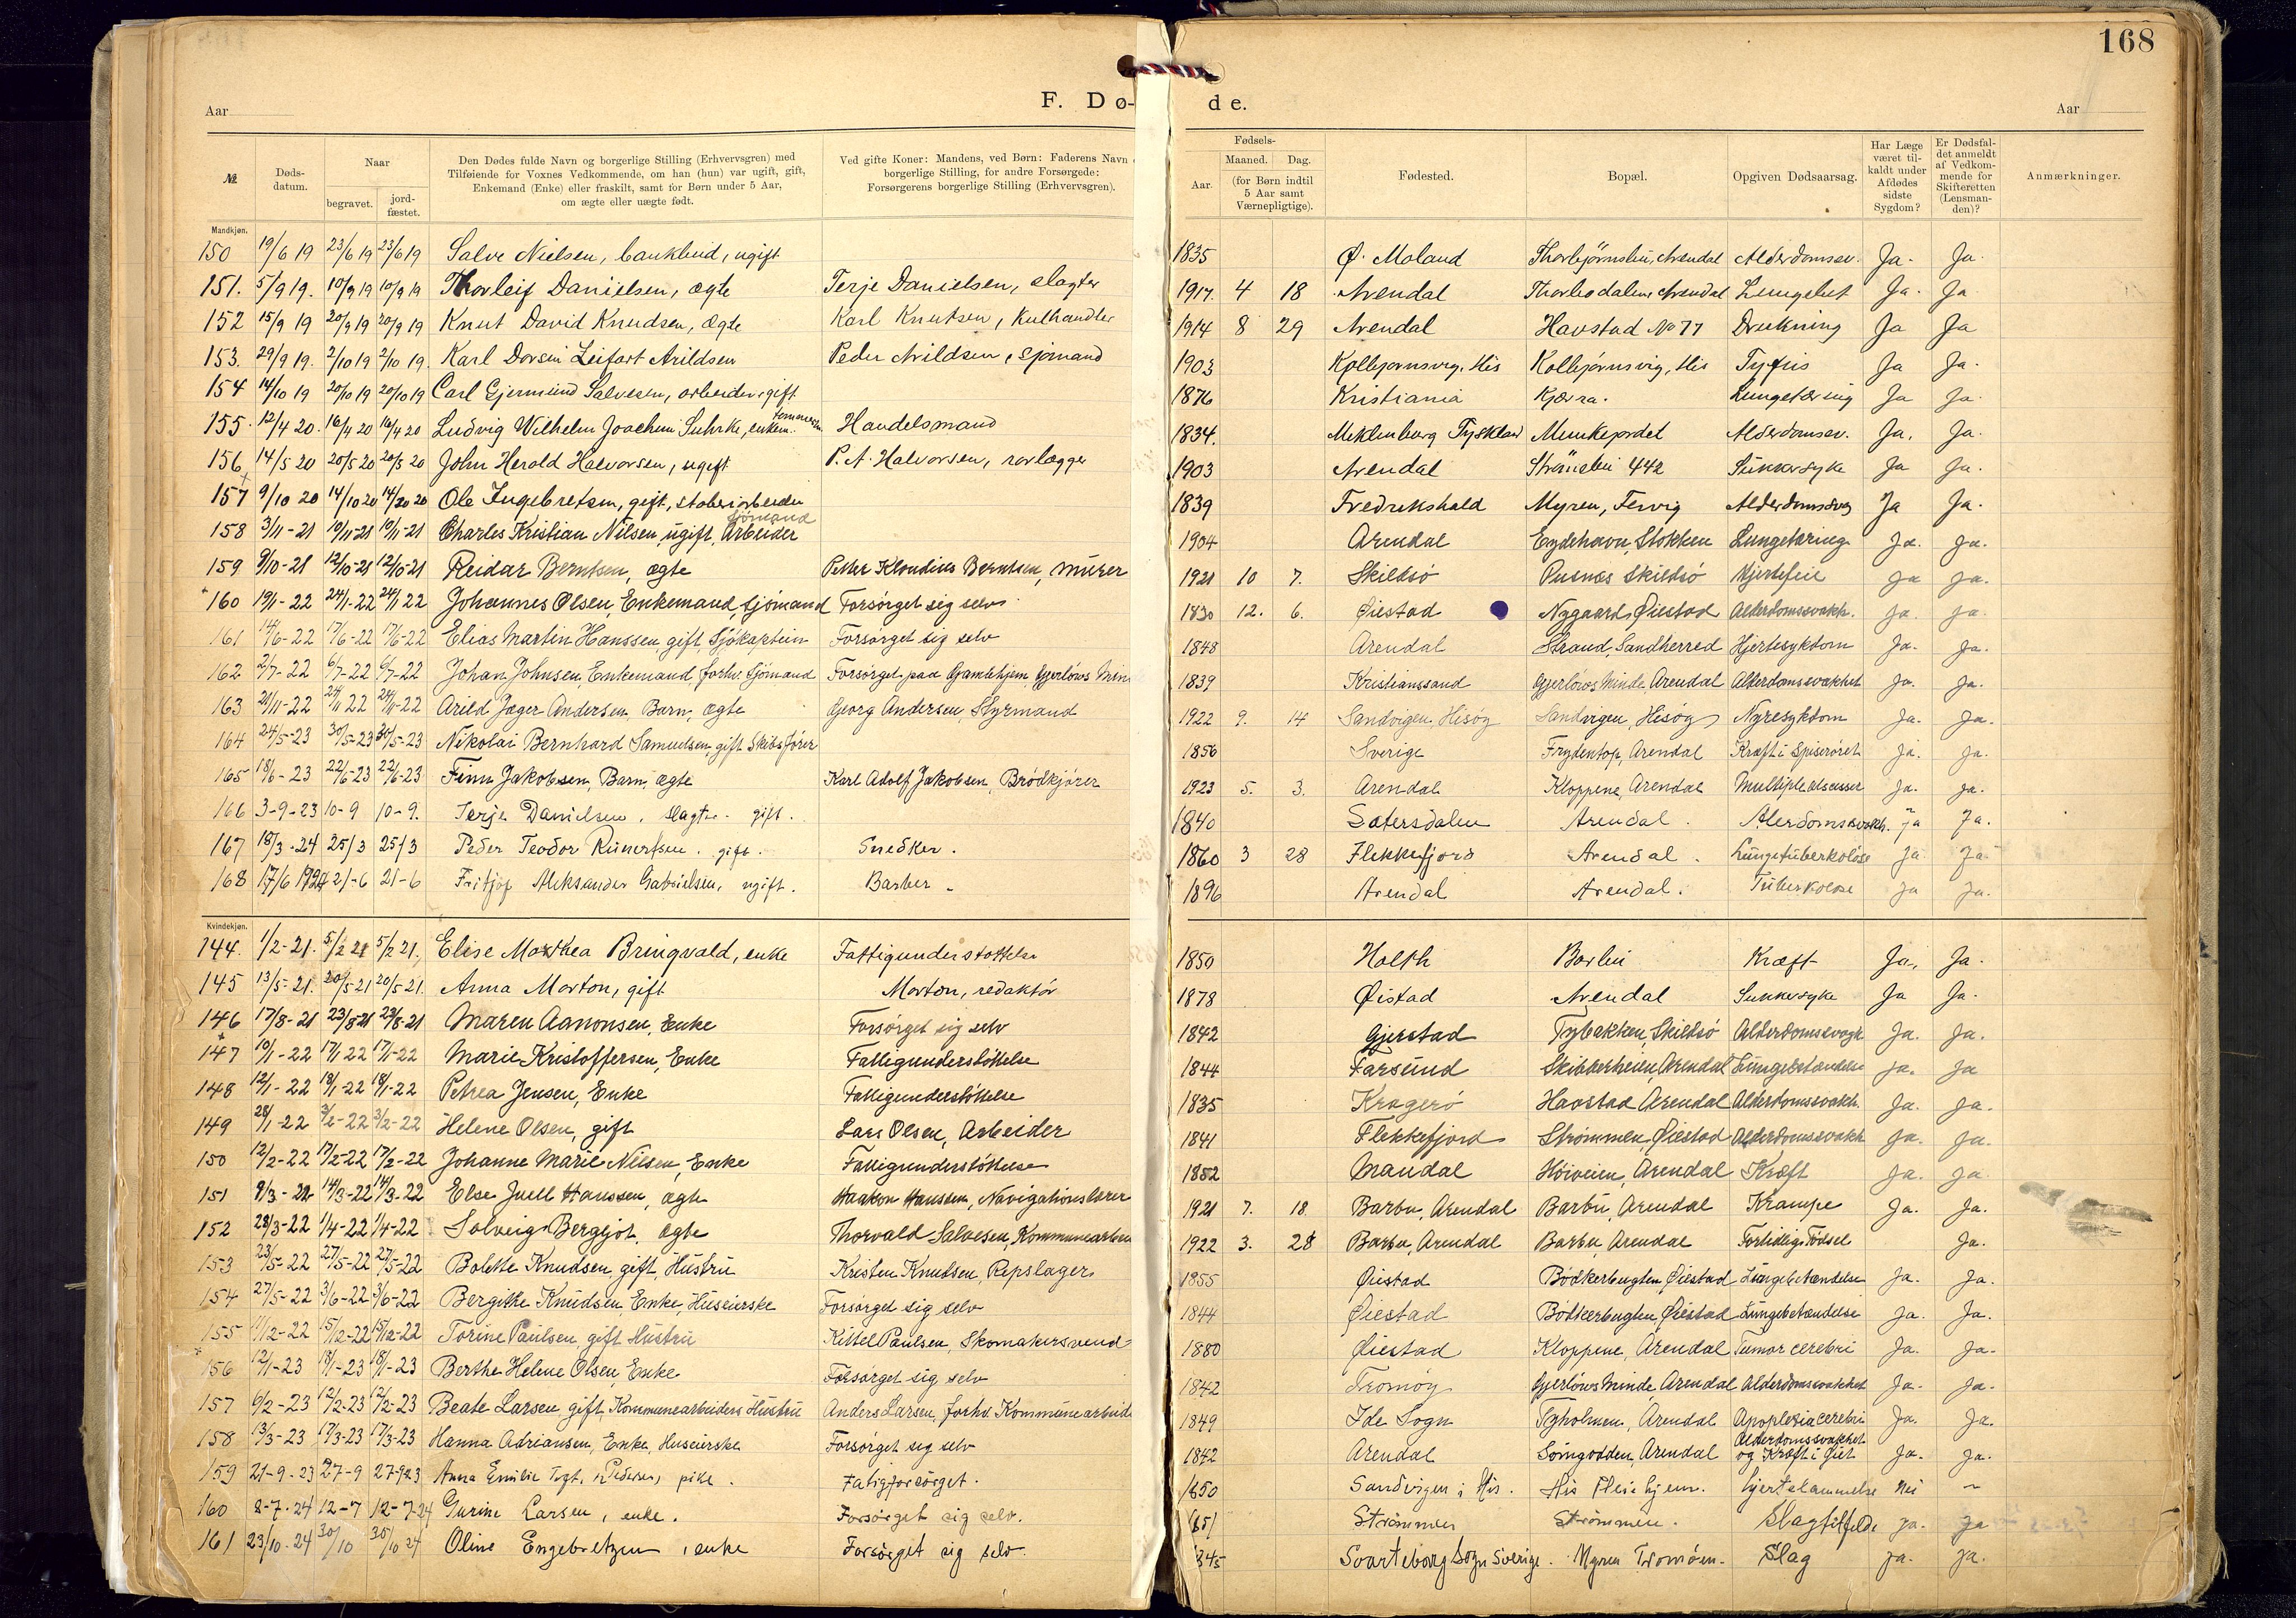 168
Aar
F. Dø-
de.
Aar
№
Døds-
datum.
Naar
begravet.
jord-
fæstet.
Den Dødes fulde Navn og borgerlige Stilling (Erhvervsgren) med
Tilføiende for Voxnes Vedkommende, om han (hun) var ugift, gift,
Enkemand (Enke) eller fraskilt, samt for Børn under 5 Aar,
om ægte eller uægte født.
Ved gifte Koner: Mandens, ved Børn: Faderens Navn
borgerlige Stilling, for andre Forsørgede:
Forsørgerens borgerlige Stilling (Erhvervsgren).
Fødsels-
Aar.
Maaned.
Dag.
(for Børn indtil
5 Aar samt
Værnepligtige).
Fødested.
Bopæl.
Opgiven Dødsaarsag.
Har Læge
været til-
kaldt under
Afdødes
sidste
Sygdom?
Er Dødsfal-
det anmeldt
af Vedkom-
mende for
Skifteretten
(Lensman-
den)?
Anmærkninger.
Mandkjøn.
150 19/6 19 23/6 19 23/6 19 Salve Nielsen, bankbud, ugift 1835 Ø. Moland Thorbjørnsbu, Arendal Alderdomssv. Ja. Ja.
151. 5/9 19. 10/9 19 10/9 19 Thorleif Danielsen, ægte Terje Danielsen, slagter 1917. 4 18 Arendal Arendal Ja. Ja
152 15/9 19 20/9 19 20/9 19 Knut David Knudsen, ægte Karl Knutsen, kulhandler 1914 8 29 Arendal Havstad No 77 Drukning Ja Ja
153. 29/9 19. 2/10 19 2/10 19. Karl Leifart Arildsen Peder Arildsen, sjömand 1903 Kolbjornsvig, His Kolbjørnsvig, His Tyfus Ja Ja.
154 14/10 19 20/10 19 20/10 19 Carl Gjermund Salvesen, arbeider, gift 1876 Kristiania Kjærra. Lungetæring Ja Ja.
155. 12/4 20. 16/4 20 16/4 20 Ludvig Wilhelm Joachim Suhrke, enkem. Handelsmand 1834. Meklenburg Tyskland Munkejordet Alderdomssv. Ja. Ja.
156 14/5 20 20/5 20 20/5 20 John Herold Halvorsen, ugift P. A. Halvorsen, rørlægger 1903 Arendal Strömsbu 442 Sukkersyke Ja Ja.
157 9/10 20 14/10 20 14/10 20 Ole Ingebretsen, gift, støberiarbeider 1839 Fredrikshald Myren, Fervig Alderdomssvag Ja Ja.
158 3/11-21 10/11-21 10/11-21 Charles Kristian Nilsen, ugift, Arbeider Sjömand 1904 Arendal Eydehavn, Stokken Lungetæring Ja. Ja.
159 9/10-21 12/10-21 12/10-21 Reidar Berntsen, ægte Petter Klaudius Berntsen, murer 1921 10 7. Skilsö Pusnes Skilsö Hjertefeil Ja Ja.
160 19/1-22 24/1-22 24/1 22 Johannes Olsen, Enkemand, Sjömand Forsörget sig selv 1830 12. 6. Öiestad Nygaard, Öiestad Alderdomssvakh. Ja. Ja.
161 14/6-22 17/6-22 17/6-22 Elias Martin Hanssen, gift, Sjökaptein Forsörget sig selv 1848 Arendal Strand, Sandherred Hjertesykdom Ja. Ja.
162 2/7-22 6/7-22 6/7-22 Johan Johnsen, Enkemand, forhv. Sjömand Forsörget paa Gamlehjem, Gjerlöws Min 1839 Kristianssand Gjerlöws Minde Arendal Alderdomssvakhet Ja. Ja.
163 21/11-22 24/11 22 24/11-22 Arild Jæger Andersen, Barn, ægte Georg Andersen, Styrmand 1922 9. 14 Sandvigen, Hisöy Sandvigen, Hisöy Nyresykdom Ja. Ja.
164 24/5-23 30/5-23 30/5-23 Nikolai Bernhard Samuelsen, gift Skibsförer 1856 Sverige Frydentop, Arendal Kræft i Spiserøret Ja. Ja.
165 18/6-23 22/6-23 22/6-23 Finn Jakobsen, Barn, ægte Karl Adolf Jakobsen, Brödkjörer 1923 5. 3. Arendal Kloppene, Arendal Multiple abscesser Ja. Ja.
166 3-9-23 10-9 10-9. Terje Danielsen, slagter. gift. 1840 Sætersdalen Arendal. Alerdomssvakh. Ja Ja.
167 18/3-24 25/3 25/3 Peder Teodor Runertsen. gift. Snedker. 1860 3 28 Flekkefjord Arendal. Lungetuberkulose Ja Ja
168 17/6 1924 21-6 21-6 Fritjof Aleksander Gabrielsen, ugift. Barber. 1896 Arendal Arendal. Tuberkulose Ja Ja.
Kvindekjøn.
144. 1/2-21. 5/2 21 5/2 21. Elise Marthea Bringvald, enke Fattigunderstøttelse 1850 Holth Barbu Kræft Ja. Ja.
145 13/5-21. 20/5 21 20/5 21. Anna Morton, gift Morton, redaktör 1878 Øistad Arendal Sukkersyke Ja Ja.
146 17/8-21 23/8-21 23/8-21 Maren Aanonsen, Enke Forsörget sig selv 1842 Gjerstad Tybakken, Skilsö Alderdomssvagh Ja. Ja.
147 10/1-22 17/1 22 17/1-22 Marie Kristoffersen, Enke Fattigunderstöttelse 1844 Farsund Arendal Lungebetændelse Ja. Ja
148 12/1-22 18/1-22 18/1-22 Petrea Jensen, Enke Fattigunderstöttelse 1835 Kragerö Havstad Arendal Alderdomssvakh. Ja. Ja.
149 28/1-22 3/2-22 3/2-22 Helene Olsen, gift Lars Olsen, Arbeider 1841 Flekkefjord Strömmen, Öiestad Alderdomssvakh Ja. Ja.
150 12/2-22 17/2-22 17/2-22 Johanne Marie Nilsen, Enke Fattigunderstöttelse 1852 Mandal Höiveien, Arendal Kræft Ja. Ja
151 9/3-22 14/3-22 14/3-22 Else Juell Hanssen, ægte Haakon Hanssen, Navigationslærer 1921 7. 18. Barbu, Arendal Barbu, Arendal Krampe Ja. Ja.
152 28/3-22 1/4-22 1/4-22 Solveig Bergljot, ægte Thorvald Salvesen, Kommunearbei 1922 3. 28 Barbu, Arendal Barbu, Arendal Fortidlig Födsel Ja.
153 23/5-22 27/5-22 27/5-22 Bolette Knudsen, gift, Hustru Kristen Knutsen, Repslager 1855 Öiestad Bödkerbugten Öiestad Lungebetændelse Ja. Ja.
154 27/5-22 3/6-22 3/6-22 Bergithe Knudsen, Enke, Huseierske Forsörget sig selv 1844 Öiestad Bödkerbugten, Öiestad Lungebetændelse Ja. Ja.
155 11/12-22 15/12-22 15/12-22 Torine Paulsen, gift Hustru Kittel Paulsen, Skomakersvend 1880 Öiestad Kloppene, Arendal Tumor cerebri Ja. Ja.
156 12/1-23 18/1-23 18/1-23 Berthe Helene Olsen, Enke Forsörget sig selv 1842 Tromöy Gjerlöws Minde, Arendal Alderdomssvakhet Ja. Ja.
157 6/2-23 12/2-23 12/2-23 Beate Larsen, gift, Kommunearbeiders Hustru Anders Larsen, forhv. Kommunearbeide 1849 Ide Sogn Tyholmen, Arendal Apoplexia cerebri Ja. Ja.
158 13/3-23 17/3-23 17/3-23 Hanna Adriansen, Enke, Huseierske Forsörget sig selv 1842 Arendal Arendal Alderdomssvakhet og Kræft i Ja. Ja.
159 21-9-23 27-9 27-9 23 Anna Emilie Pedersen, pike. Fatigforsörget. 1850 Sandvigen i His. His Pleiehjem. hjertelammelse Nei ~
160 8-7-24 12-7 12-7-24 Gurine Larsen, enke. Forsörget sig selv. Strömmen Strömmen. Slagtilfelde Ja. Ja
161 23/10-24 30/10 30/10 24 Oline Engebretzen, enke Forsörget sig selv. 845 Svarteborg Sogn Sverige. Myren Tromöen. Slag Ja. Ja.